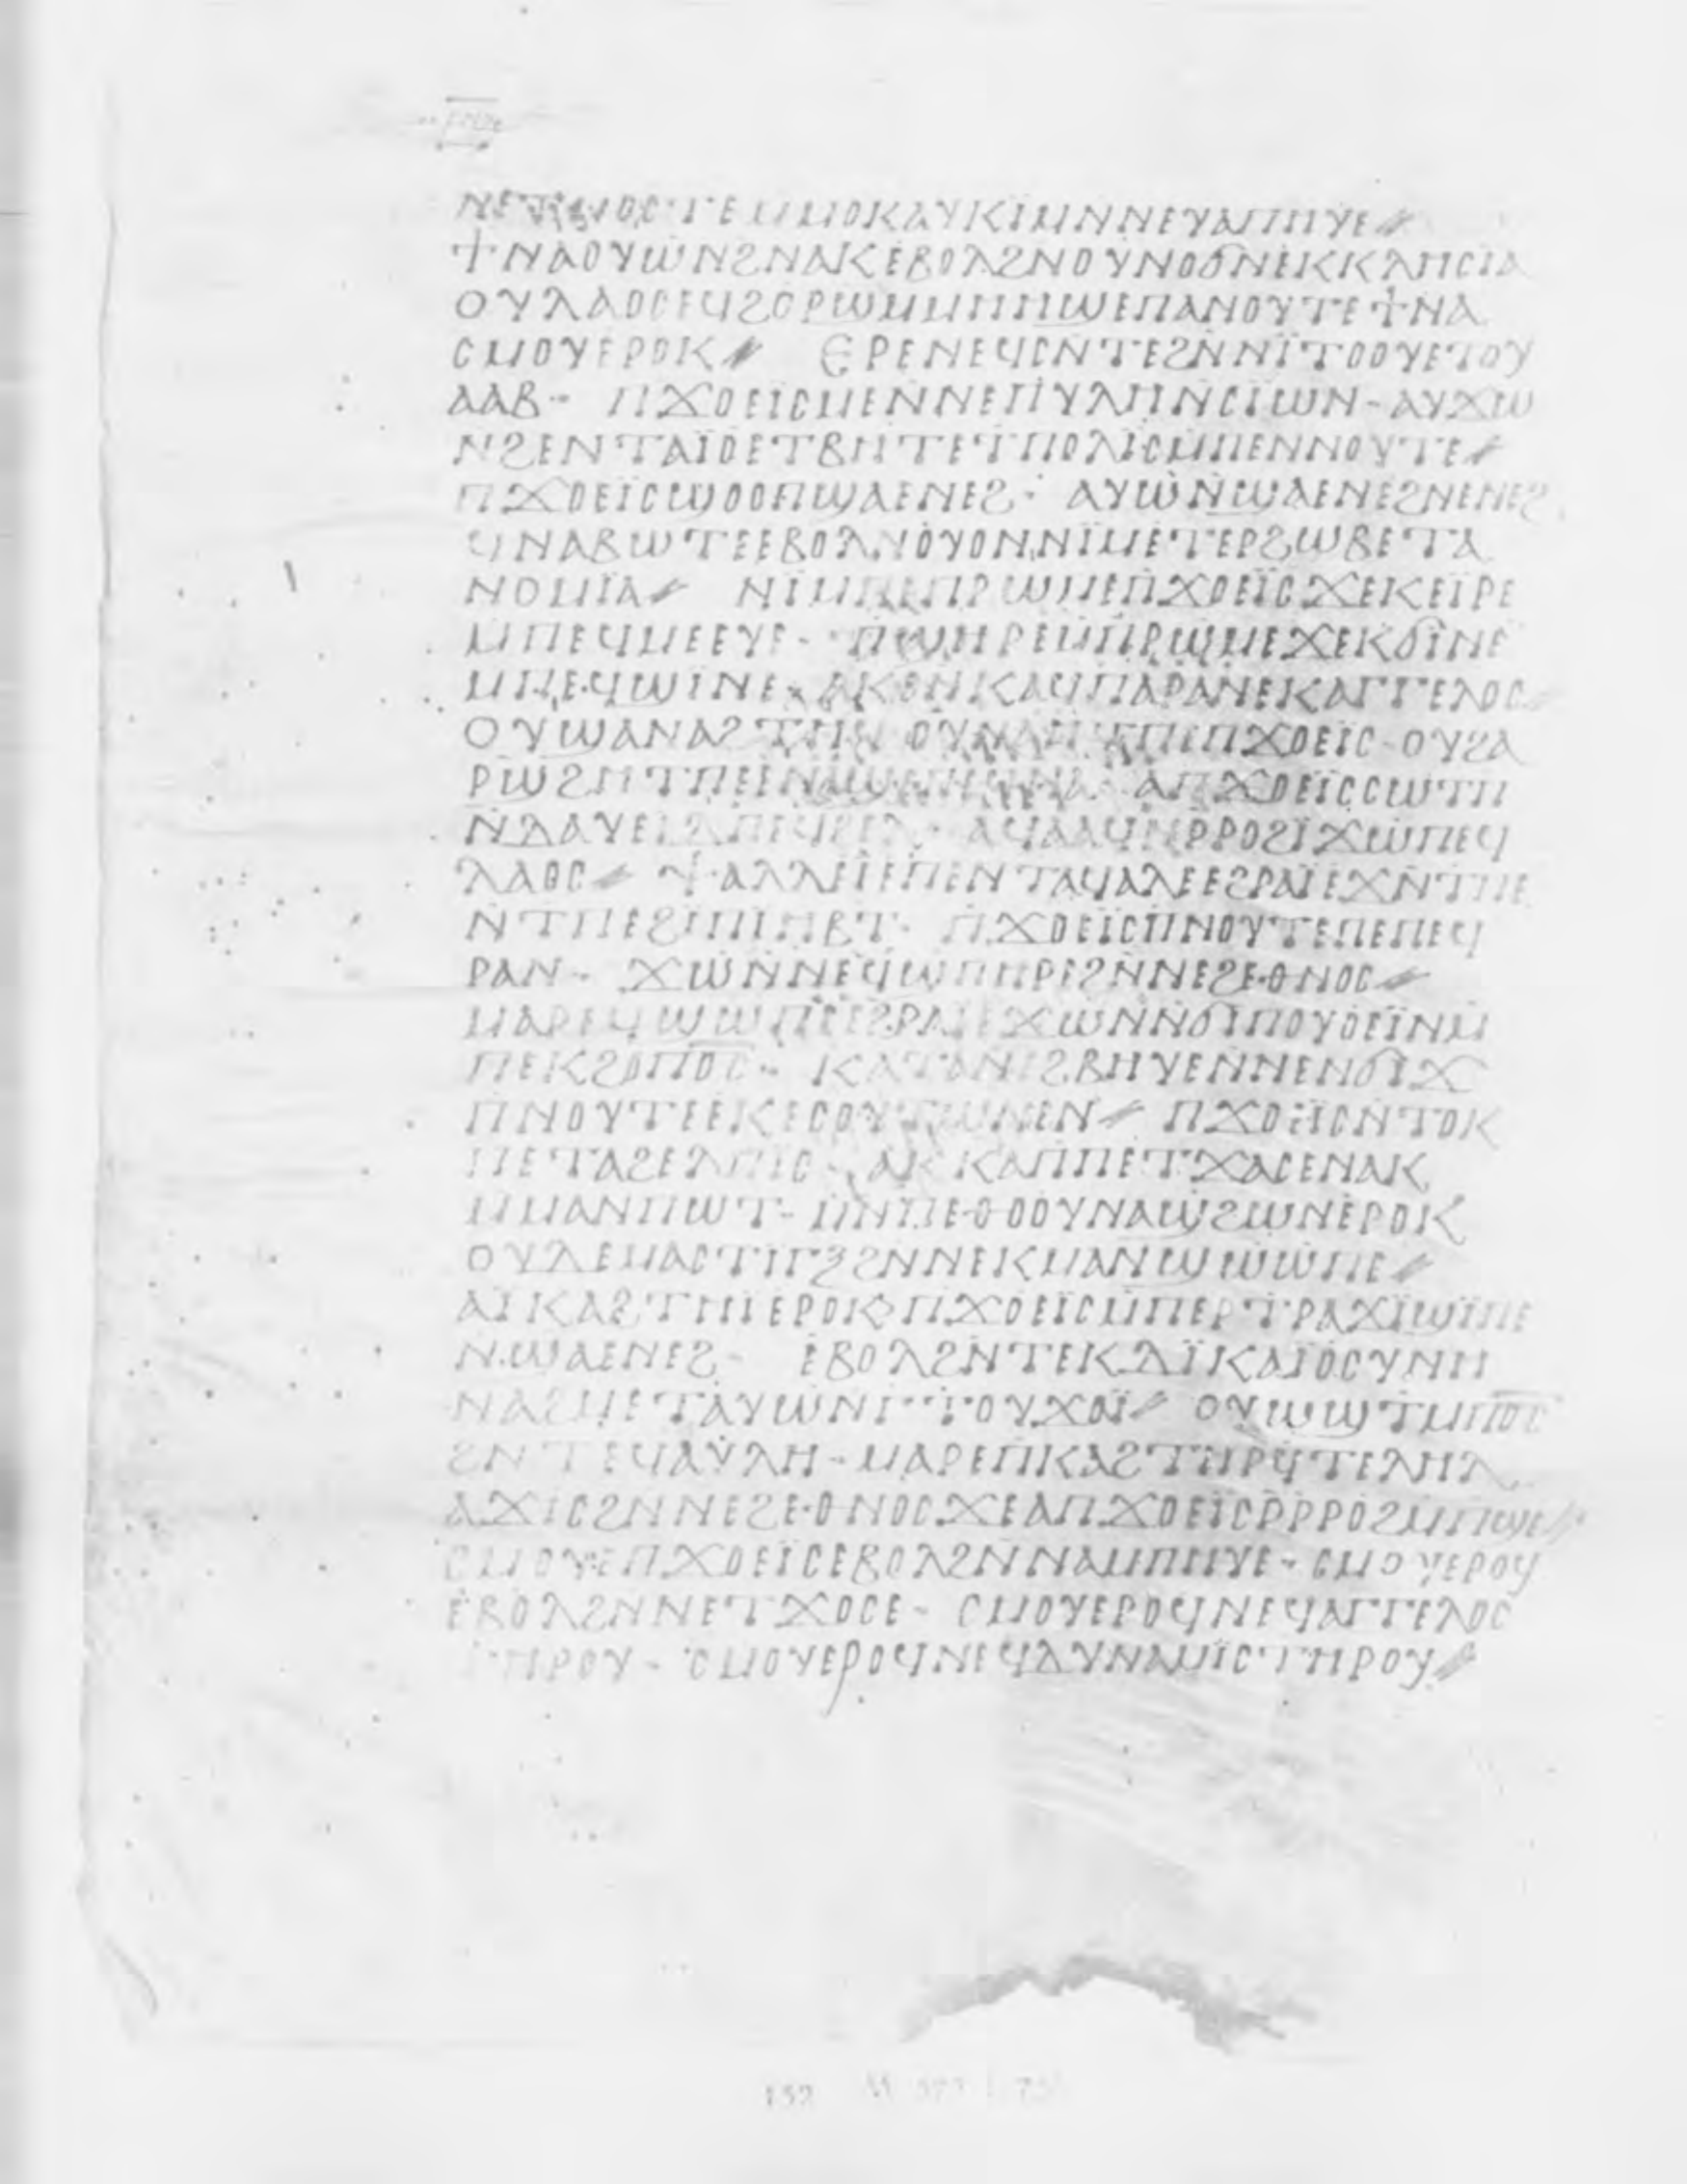 ⲛⲉⲧⲙⲟⲥⲧⲉⲙⲙⲟⲕⲁⲩⲕⲓⲙⲛⲛⲉⲩⲁⲡⲏⲩⲉ⫽
ϯⲛⲁⲟⲩⲱⲛϩⲛⲁⲕⲉⲃⲟⲗϩⲛⲟⲩⲛⲟϭⲛⲉⲕⲕⲗⲏⲥⲓⲁ
ⲟⲩⲗⲁⲟⲥⲉϥϩⲟⲣϣⲙⲙⲏⲏϣⲉⲡⲁⲛⲟⲩⲧⲉϯⲛⲁ
ⲥⲙⲟⲩⲉⲣⲟⲕ⫽ ⲉⲣⲉⲛⲉϥⲥⲛⲧⲉϩⲛⲛⲓ̈ⲧⲟⲟⲩⲉⲧⲟⲩ
ⲁⲁⲃ- ⲡϫⲟⲉⲓ̈ⲥⲙⲉⲛⲛⲉⲡⲩⲗⲏⲛⲥⲓ̈ⲱⲛ-ⲁⲩϫⲱ
ⲛϩⲉⲛⲧⲁⲓ̈ⲟⲉⲧⲃⲏⲧⲉⲧⲡⲟⲗⲓⲥⲙⲡⲉⲛⲛⲟⲩⲧⲉ⫽
ⲡϫⲟⲉⲓ̈ⲥϣⲟⲟⲡϣⲁⲉⲛⲉϩ· ⲁⲩⲱⲛϣⲁⲉⲛⲉϩⲛⲉⲛⲉϩ
ϥⲛⲁⲃⲱⲧⲉⲉⲃⲟⲗⲛⲟⲩⲟⲛⲛⲓⲙⲉⲧⲉⲣϩⲱⲃⲉⲧⲁ
ⲛⲟⲙⲓ̈ⲁ⫽ ⲛⲓⲙⲡⲉⲡⲣⲱⲙⲉⲡϫⲟⲉⲓ̈ⲥϫⲉⲕⲉⲓ̈ⲣⲉ
ⲙⲡⲉϥⲙⲉⲉⲩⲉ- ⲡϣⲏⲣⲉⲙⲡⲣⲱⲙⲉϫⲉⲕϭⲓⲛⲉ
ⲙⲡⲉϥϣⲓⲛⲉ- ⲁⲕⲑⲃⲕⲁϥⲡⲁⲣⲁⲛⲉⲕⲁⲅⲅⲉⲗⲟⲥ⫽
ⲟⲩϣⲁⲛⲁϩⲧⲏϥ ⲟⲩⲛⲁⲏⲧⲡⲉⲡϫⲟⲉⲓⲥ-ⲟⲩϩⲁ
ⲣϣϩⲏⲧⲡⲉ ⲁⲡϫⲟⲉⲓ̈ⲥⲥⲱⲧⲡ
ⲛⲇⲁⲩⲉⲓⲇⲡⲉϥϩⲙϩⲁⲗ- ⲁϥⲁⲁϥⲛⲣⲣⲟϩⲓϫⲱⲡⲉϥ
ⲗⲁⲟⲥ⫽ ⲯⲁⲗⲗⲉⲓⲉⲡⲉⲛⲧⲁϥⲁⲗⲉⲉϩⲣⲁⲓ̈ⲉϫⲛⲧⲡⲉ
ⲛⲧⲡⲉϩⲓⲡⲓⲏⲃⲧ· ⲡϫⲟⲉⲓ̈ⲥⲡⲛⲟⲩⲧⲉⲡⲉⲡⲉϥ
ⲣⲁⲛ- ϫⲱⲛⲛⲉϥϣⲡⲏⲣⲉϩⲛⲛⲉϩⲉⲑⲛⲟⲥ⫽
ⲙⲁⲣⲉϥϣⲱⲡⲉⲉϩⲣⲁⲓ̈ⲉϫⲱⲛⲛϭⲓⲡⲟⲩⲟⲉⲓⲛⲙ
ⲡⲉⲕϩⲟⲡⲟ̅ⲥ̅- ⲕⲁⲧⲁⲛⲉϩⲃⲏⲩⲉⲛⲛⲉⲛϭⲓϫ
ⲡⲛⲟⲩⲧⲉⲉⲕⲉⲥⲟⲩⲧⲱⲛⲉⲛ⫽ ⲡϫⲟⲉⲓⲥⲛⲧⲟⲕ
ⲡⲉⲧⲁϩⲉⲗⲡⲓⲥ- ⲁⲕⲕⲁⲡⲡⲉⲧϫⲁⲥⲉⲛⲁⲕ
ⲙⲙⲁⲛⲡⲱⲧ- ⲙⲛⲡⲉⲑⲟⲟⲩⲛⲁϣϩⲱⲛⲉⲣⲟⲕ
ⲟⲩⲇⲉⲙⲁⲥⲧⲓⲅⲝϩⲛⲛⲉⲕⲙⲁⲛϣⲱⲱⲡⲉ⫽
ⲁⲓ̈ⲕⲁϩⲧⲏⲓⲉⲣⲟⲕⲡϫⲟⲉⲓ̈ⲥⲙⲡⲉⲣⲧⲣⲁϫⲓϣⲓⲡⲉ
ⲛϣⲁⲉⲛⲉϩ- ⲉⲃⲟⲗϩⲛⲧⲉⲕⲇⲓ̈ⲕⲁⲓ̈ⲟⲥⲩⲛⲏ
ⲛⲁϩⲙⲉⲧⲁⲩⲱⲛⲅⲧⲟⲩϫⲟⲓ̈⫽ ⲟⲩⲱϣⲧⲙⲡⲟ̅ⲥ̅
ϩⲛⲧⲉϥⲁⲩⲗⲏ-ⲙⲁⲣⲉⲡⲕⲁϩⲧⲏⲣϥⲧⲉⲗⲏⲗ
ⲁϫⲓⲥϩⲛⲛⲉϩⲉⲑⲛⲟⲥϫⲉⲁⲡϫⲟⲉⲓ̈ⲥⲣⲣⲣⲟϩⲙⲡϣⲉ⫽
ⲥⲙⲟⲩⲉⲡϫⲟⲉⲓ̈ⲥⲉⲃⲟⲗϩⲛⲛⲁⲙⲡⲏⲩⲉ-ⲥⲙⲟⲩⲉⲣⲟϥ
ⲉⲃⲟⲗϩⲛⲛⲉⲧϫⲟⲥⲉ- ⲥⲙⲟⲩⲉⲣⲟϥⲛⲉϥⲁⲅⲅⲉⲗⲟⲥ
ⲧⲏⲣⲟⲩ- ⲥⲙⲟⲩⲉⲣⲟϥⲛⲉϥⲇⲩⲛⲁⲙⲓ̈ⲥⲧⲏⲣⲟⲩ⫽